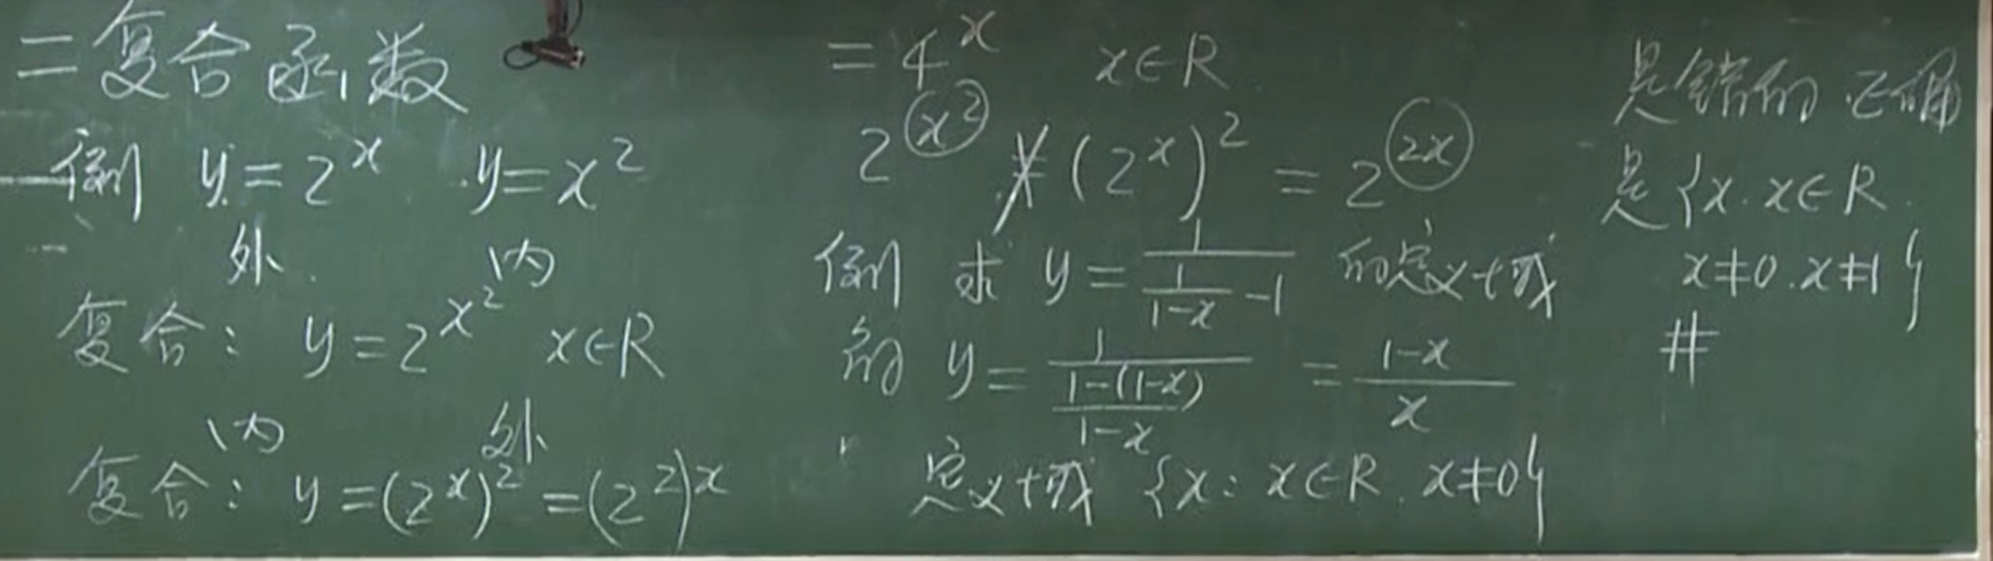 二复合函数
例 y=2^x y=x^2
外 内
复合: y=2^{x^2} x∈R
内 外
复合: y=(2^x)^2=(2^2)^x
=4^x x∈R
2^{x^2}≠(2^x)^2=2^{2x}
例 求 y=\frac{1}{\frac{1}{1-x}-1} 的定义域
y=\frac{1}{\frac{1-(1-x)}{1-x}}=\frac{1-x}{x}
定义域 {x: x∈R, x≠0}
是错的.正确
是{x. x∈R.
x≠0.x≠1}
#